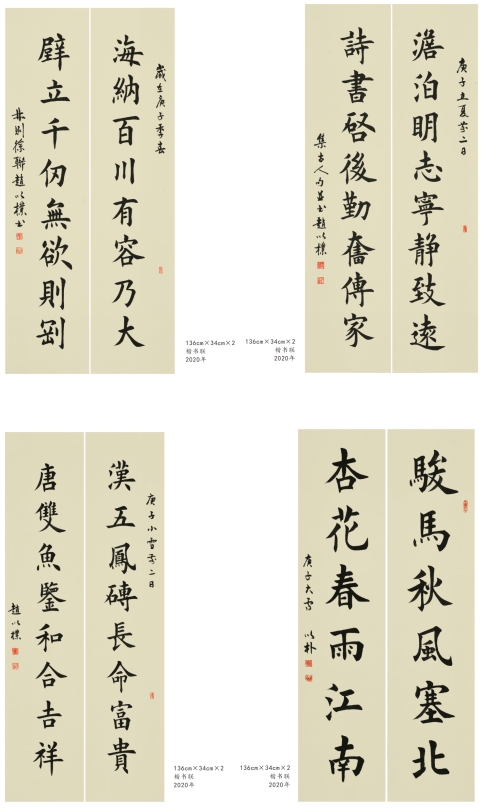 歲在庚子季春
海納百川有容乃大
壁立千仞無欲則剛
林則徐聯趙以樸書
136cm×34cm×2
楷书联
2020年
庚子立夏前二日
澹泊眀志寧静致遠
詩書啓後勤奮傳家
集古人句並书趙以樸
136cm×34cm×2
楷书联
2020年
庚子小雪前二日
漢五鳳磚長命富貴
唐雙魚鑒和合吉祥
趙以樸
136cm×34cm×2
楷书联
2020年
駿馬秋風塞北
杏花春雨江南
庚子大雪 以朴
136cm×34cm×2
楷书联
2020年